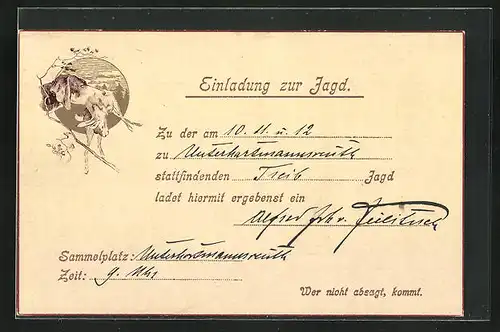 Einladung zur Jagd.
Zu der am 10. 11. u. 12
zu Unterhartmannsreuth
stattfindenden Treib Jagd
ladet hiermit ergebenst ein
Alfred Frh. v. Feilitzsch
Sammelplatz: Unterhartmannsreuth
Zeit: 9. Uhr
Wer nicht absagt, kommt.